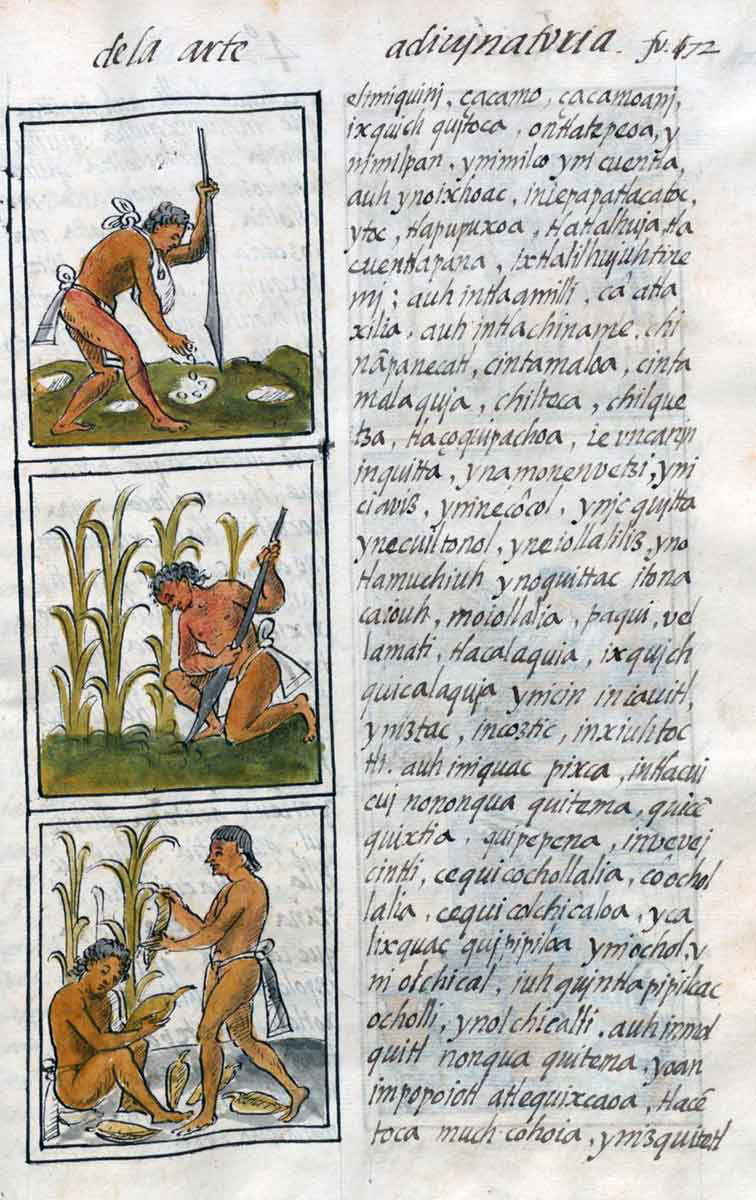 dela arte adiujnaturia. fo. 72
elimiquinj, cacamo, cacamoanj,
ixquich quitoca, ontlatepeoa, y
nimilpan, ynimilco yni cuentla,
auh ynoixhoac, iniepapatlacatoc,
ytoc, tlapupuxoa, tlatalhuja, tla
cuentlapana, txtlalilhujuhtine
mj; auh intlaamilli, câ atla
xilia, auh intlachiname, chi
nāpanecatl, cintamaloa, cinta
malaquja, chilteca, chilque
tza, tlaçoquipachoa, ie vncanjn
inquitta, ynamonenvetzi, yni
ciaviz, yninecôcol, ynjc quitta
ynecuiltonol, yneiollaliliz, yno
tlamuchiuh ynoquittac itona
caiouh, moiollalia, paqui, vel
lamati, tlacalaquia, ixqujch
quicalaquja ynicin incavitl,
yniztac, incoztic, inxiuhtoc
tli. auh iniquac pixca, intlacui
cuj nononqua quitema, quicē
quixtia, quipepena, invevej
cintli, cequicochollalia, côochol
lalia, cequicolchicaloa, yca
lixquac qujpipiloa yniochol, y
ni olchical, iuh quintlapipilcac
ocholli, ynolchicalli. auh inmol
quitl nonqua quitema, yoan
impopoiotl atlequixcaoa, tlacē
toca much cohoia, ynizquitetl